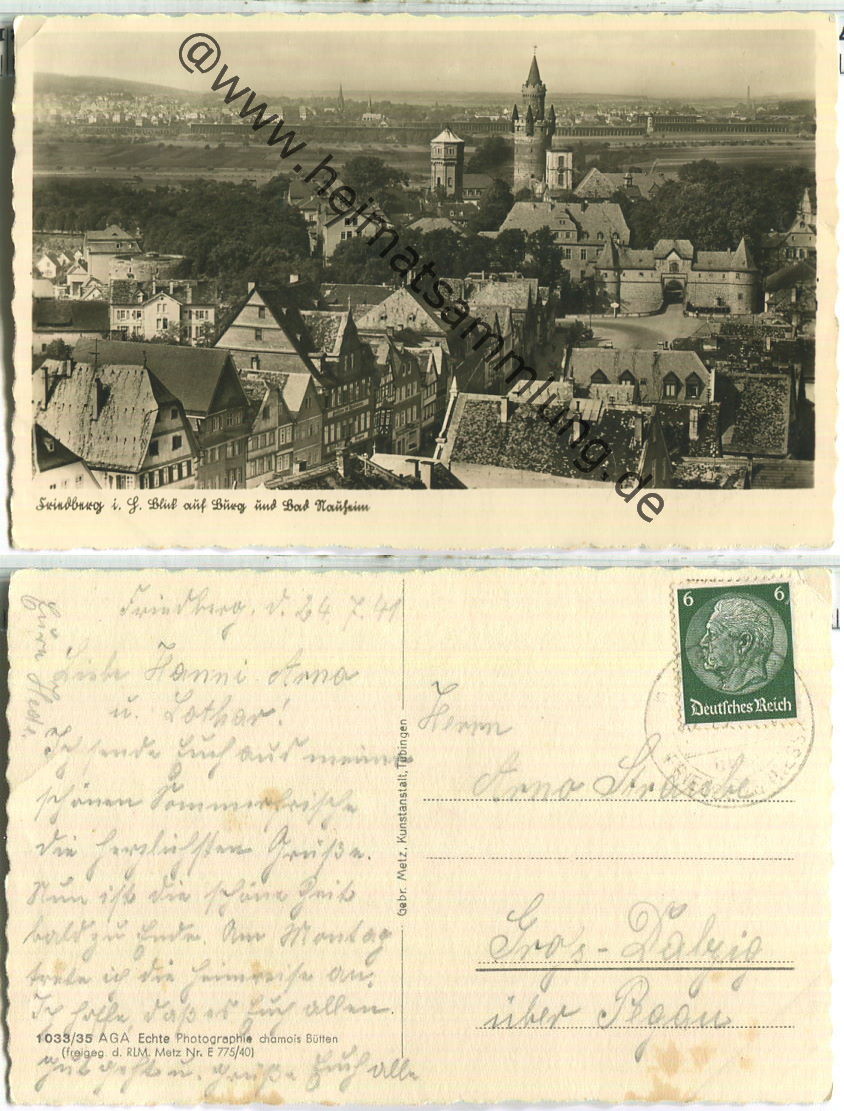 @www.heimatsammlung.de
Friedberg i. H. Blick auf Burg und Bad Nauheim
Friedberg, d. 24. 7. 41
Liebe Hanni Arno
u. Lothar!
Ich sende Euch aus meiner
schönen Sommerfrische
die herzlichsten Grüße.
Nun ist die schöne Zeit
bald zu Ende. Am Montag
trete ich die Heimreise an.
Ich hoffe, daß es Euch allen
gut geht u. grüße Euch alle
Eure Hede.
1033/35 AGA Echte Photographie chamois Bütten
(freigeg. d. RLM. Metz Nr. E 775/40)
Gebr. Metz, Kunstanstalt, Tübingen
6 6
Deutsches Reich
Herrn
Arno
Groß-Dalzig
über Pegau